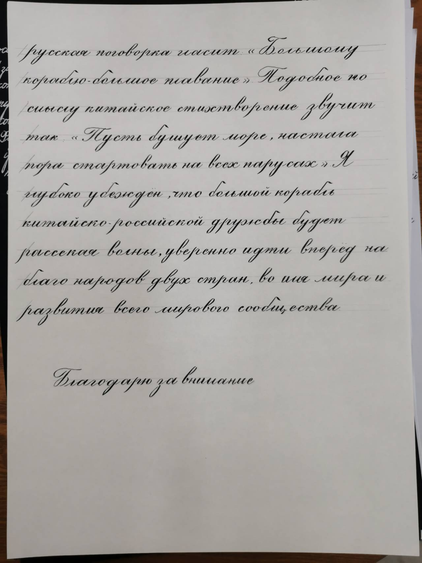 русская поговорка гласит «Большому
кораблю-большое плавание» Подобное по
смыслу китайское стихтворение звучит
так «Пусть бушует море, настала
пора стартовать на всех парусах» Я
глубоко убежден, что большой корабль
китайско-российской дружбы будет
рассекая волны, уверенно идти вперед на
благо народов двух стран, во имя мира и
развития всего мирового сообщества
Благодарю за внимание